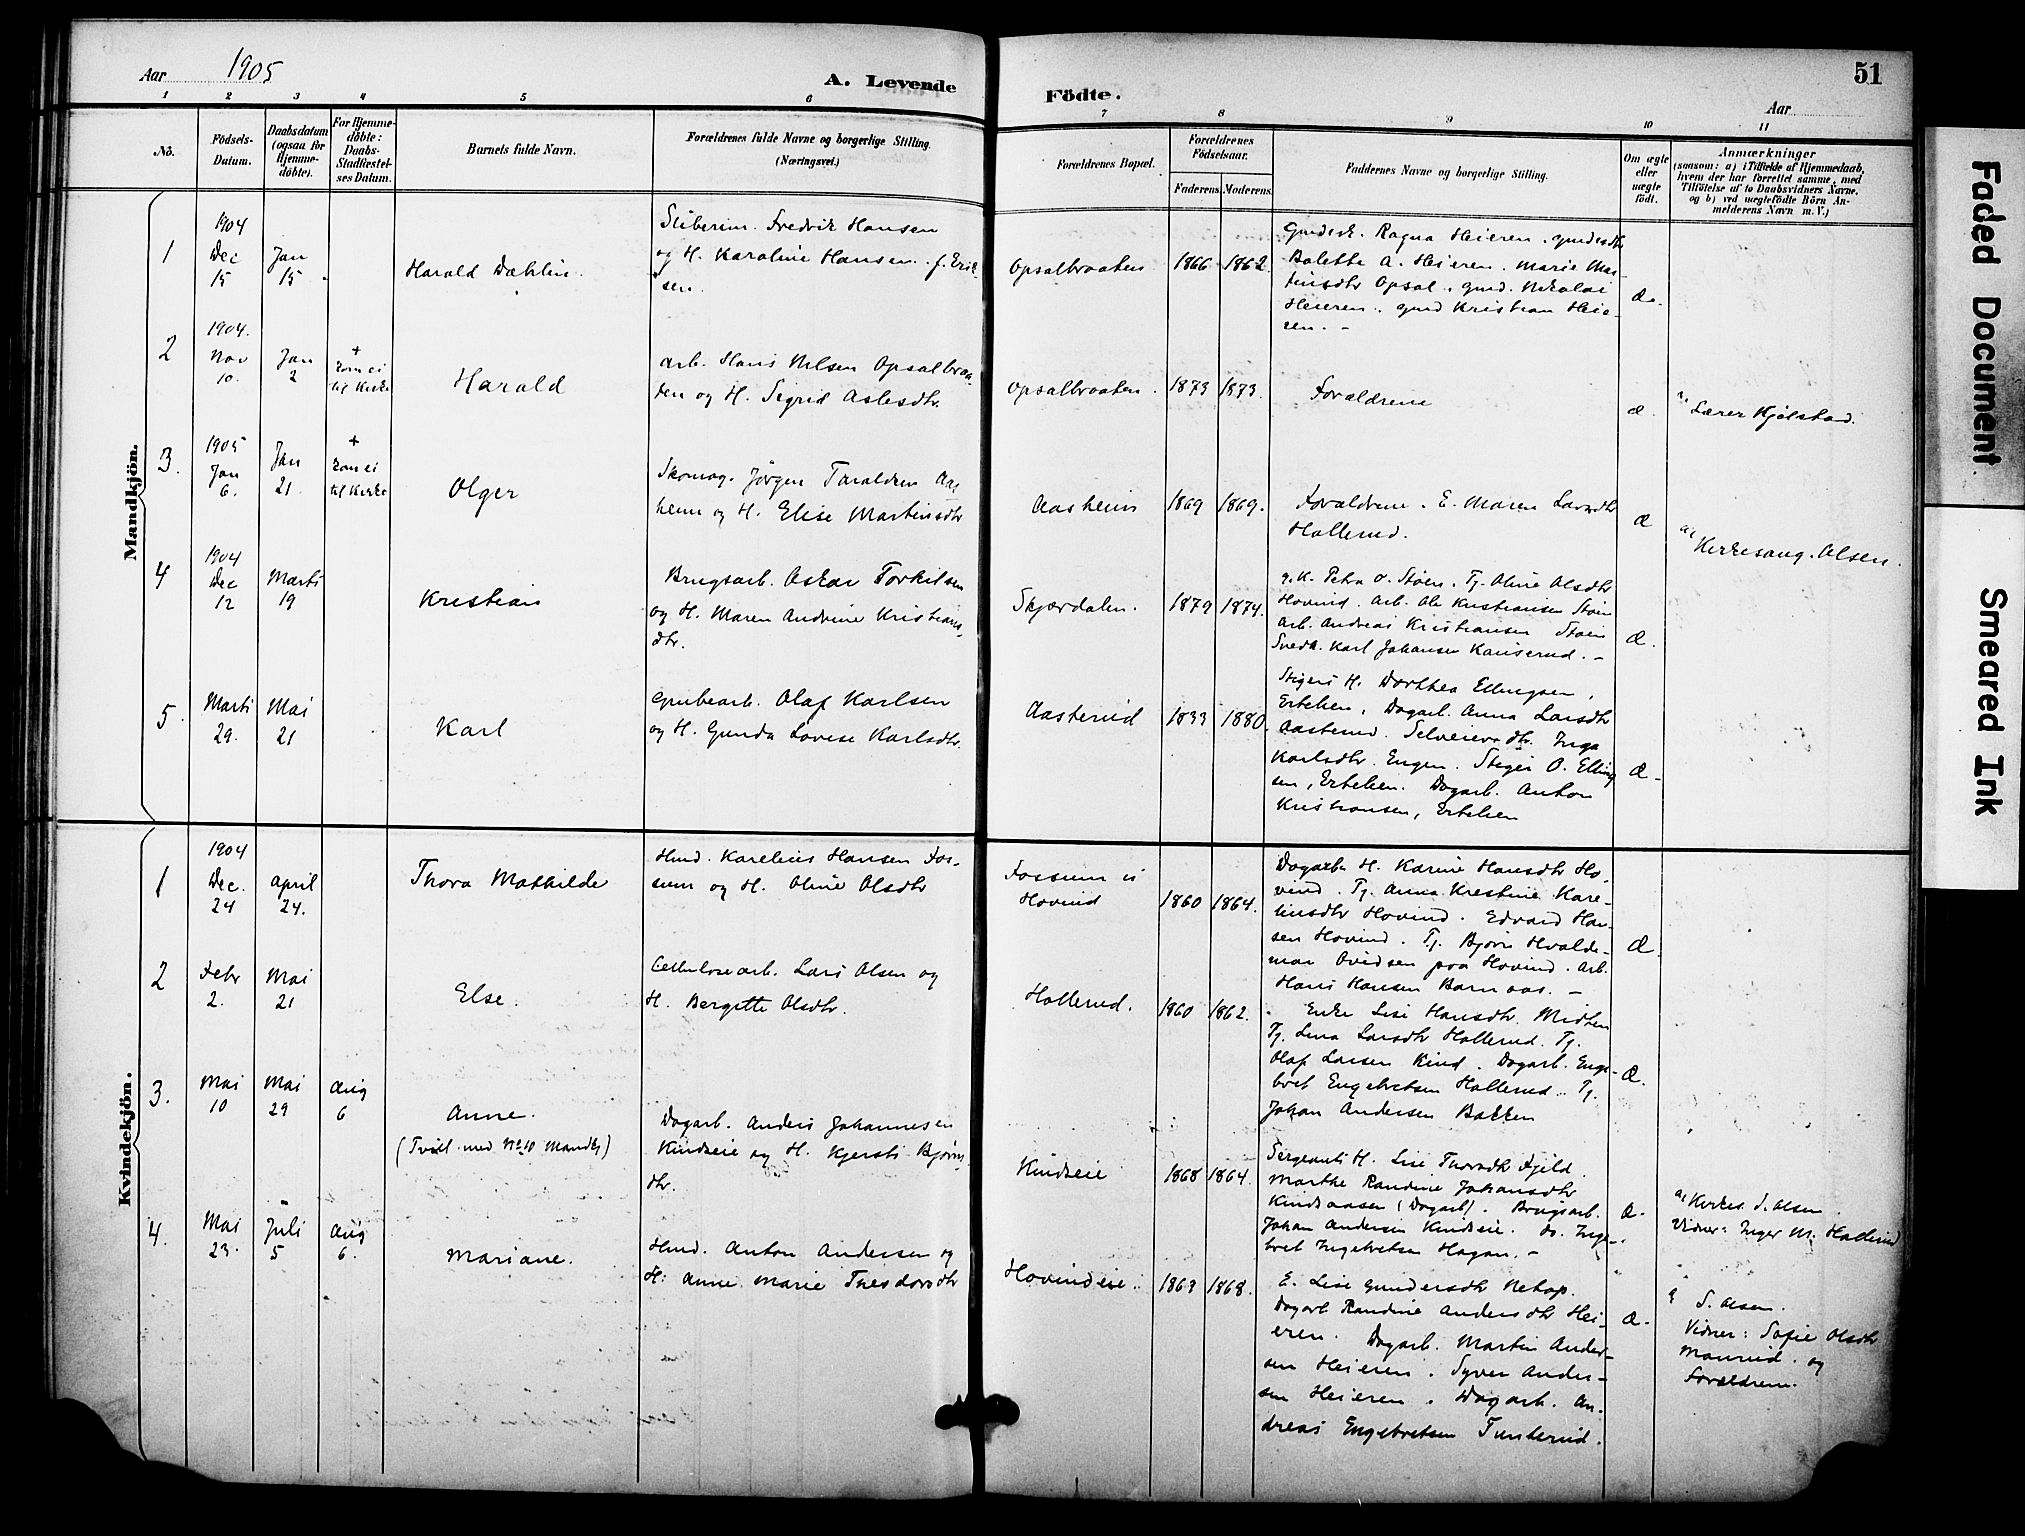 Aar 1905
A. Levende
Födte.
Aar
51
1 2 3 4 5 6 7 8 9 10 11
No.
Födsels-
Datum.
Daabsdatum
(ogsaa for
Hjemme-
döbte).
For Hjemme-
döbte:
Daabs-
Stadfæstel-
ses Datum.
Barnets fulde Navn.
Forældrenes fulde Navne og borgerlige Stilling.
(Næringsvei.)
Forældrenes Bopæl.
Forældrenes
Födselsaar.
Faderens.
Moderens.
Faddernes Navne og borgerlige Stilling.
Om ægte
eller
uægte
födt.
Anmærkninger
(saasom: a) i Tilfælde af Hjemmedaab,
hvem der har forrettet samme, med
Tilföielse af to Daabsvidners Navne,
og b) ved uægtefödte Börn An-
melderens Navn m. V.)
Mandkjön.
1
1904
Dec
15
Jan
15
Harald Dahlin.
Sliberim. Fredrik Hansen
og H. Karoline Hansen. f. Erik-
sen.
Opsalbraaten
1866
1862.
Gmdsk. Ragna Heieren. gmdsdtr
Balette A. Heieren. Marie Mar-
tinsdtr Opsal. gmd. Nikolai
Heieren. gmd Kristian Heie-
ren. -
Æ.
2
1904.
Nov
10.
Jan
2
+
kom ei
til Kirke
Harald
Arb. Hans Nilsen Opsalbraa-
ten og H. Sigrid Aslesdtr.
Opsalbraaten.
1873
1873.
Forældrene
Æ.
a, Lærer Kjølstad.
3.
1905
Jan
6.
Jan
21.
+
kom ei
til Kirke
Olger
Skomag. Jörgen Taraldsen Aas-
heim og H. Elise Martinsdtr
Aasheim
1869
1869.
Forældrene. E. Maren Larsdtr
Hallerud.
Æ
a, Kirkesang. Olsen.
4
1904
Dec
12
Marts
19
Kristian
Brugsarb. Oskar Torkilsen
og H. Maren Andrine Kristians-
dtr.
Skjærdalen.
1879
1874.
g. K. Petra O. Støen. Tj. Oline Olsdtr
Hovind. Arb. Ole Kristiansen Støen
Arb. Andreas Kristiansen Støen
Snedk. Karl Johansen Kauserud. -
Æ.
5.
Marts
29.
Mai
21
Karl
Grubearb. Olaf Karlsen
og H. Gunda Lovise Karlsdtr.
Aasterud
1833
1880.
Stigers H. Dorthea Ellingsen,
Ertelien, Dagarb. Anna Larsdtr
Aasterud. Selveierdtr. Inga
Karlsdtr. Engen. Stiger O. Elling-
sen, Ertelien. Dagarb. Anton
Kristiansen, Ertelien
Æ.
Kvindekjön.
1
1904
Dec.
24
April
24.
Thora Mathilde
Hmd. Karelius Hansen Fos-
sum og H. Oline Olsdtr
Fossum u
Hovind
1860
1864.
Dagarbs H. Karine Hansdtr Ho-
vind. Tj. Anna Kristine Kare-
liusdtr Hovind. Edvard Han-
sen Hovind. Tj. Bjørn Hvalde-
mar Ovidsen paa Hovind. Arb.
Hans Hansen Barnaas. -
Æ.
2
Febr
2.
Mai
21
Else.
Cellulosearb. Lars Olsen og
H. Bergitte Olsdtr.
Hallerud.
1860
1862.
Enke Lise Hansdtr. Midten
Tj. Lina Larsdtr Hallerud. Tj.
Olaf Larsen Kind. Dagarb. Enge-
bret Engebretsen Hallerud. Tj.
Johan Andersen Bakken
Æ.
3.
Mai
10
Mai
29
Aug
6
Anne.
(Tvill. med No 10 Mandkj)
Dagarb. Anders Johannesen
Kindseie og H. Kjersti Bjørns-
dtr.
Kindseie
1868
1864.
Sergeants H. Lise Thorsdtr Fjeld.
Marthe Randine Johansdtr
Kindsaasen (Dagarb). Brugsarb.
Johan Andersen Kindseie. do. Inge-
bret Ingebretsen Hagan. -
Æ.
a, Kirkes. S. Olsen.
Vidner: Inger M. Hallerud
4.
Mai
23.
Juli
5
Aug
6.
Mariane.
Hmd. Anton Andersen og
H. Anne Marie Theodorsdtr
Hovindeie.
1863
1868.
E. Lise Gundersdtr Netop.
Dagarb Randine Andersdtr Hei-
eren. Dagarb. Martin Ander-
sen Heieren. Syver Ander-
sen Heieren. Dagarb. An-
dreas Engebretsen Tunterud.
Æ.
a, S. Olsen.
Vidner: Sofie Olsdtr
Maurud. og
Forældrene.
Faded Document.
Smeared Ink